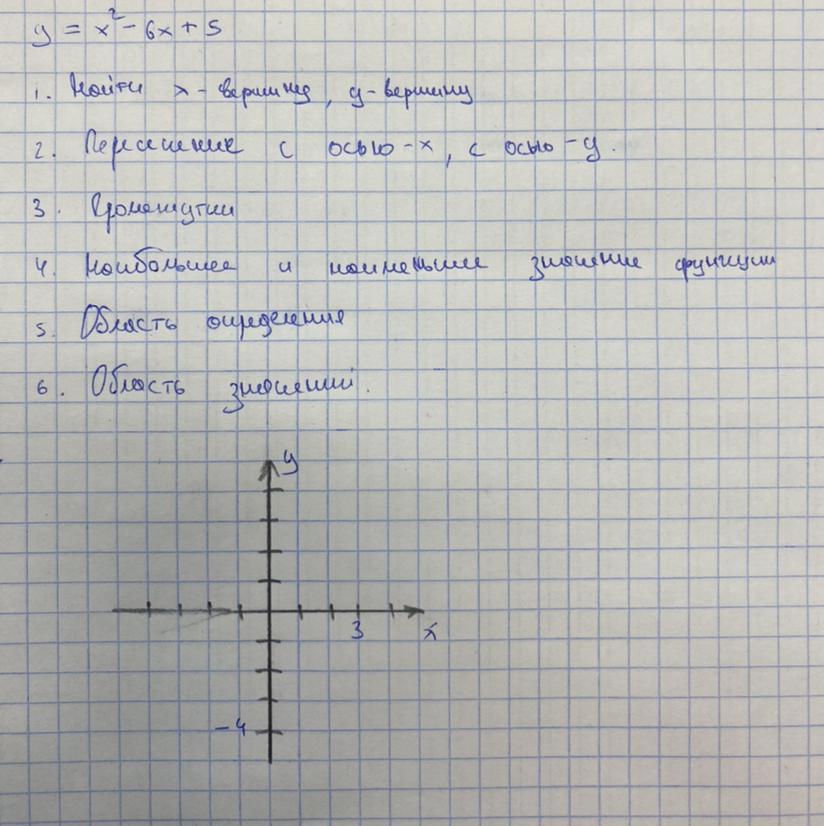 y = x² - 6x + 5
1. Найти x - вершину, y - вершину
2. Пересечение с осью - x, с осью - y.
3. Промежутки
4. Наибольшее и наименьшее значение функции
5. Область определения
6. Область значений.
y
3
x
-4